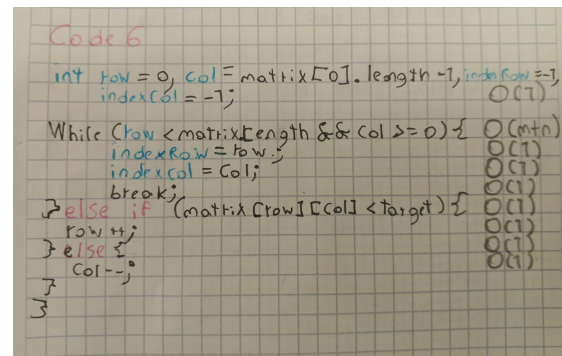 Code 6
int row = 0, col = matrix[0].length -1, indexRow = -1,
indexCol = -1; O(1)
While (row < matrix.Length && Col >= 0) { O(m+n)
indexRow = row; O(1)
indexcol = Col; O(1)
break; O(1)
} else if (matrix [row] [Col] < Target) { O(1)
row ++; O(1)
} else { O(1)
Col--; O(1)
}
}